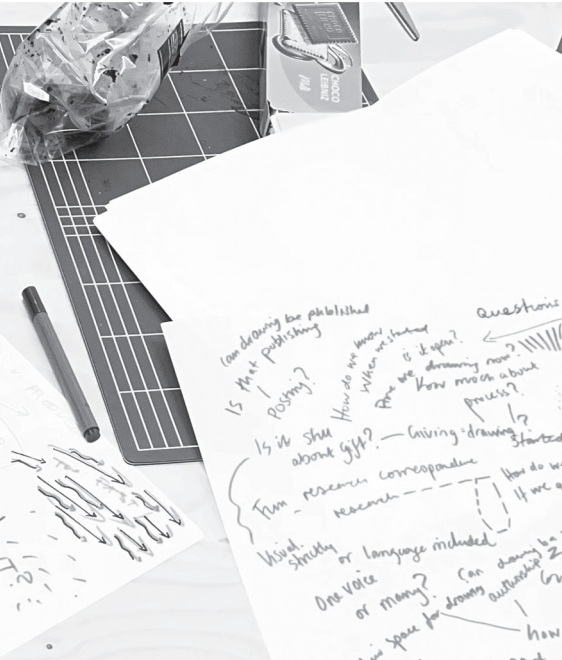 CHOCO
LEIBNIZ
PiCK
can drawing be published
Is that publishing
/
Posting?
How do we know
when we started
Questions
is it open?
Are we drawing now?
How much about
process?
Is it still
about gift? — Giving drawing
started
Turn - research correspondence
research - - - -
How do we
If we
Visual
strictly or language included
One voice
or many?
Can drawing be
space for drawing authorship?
how